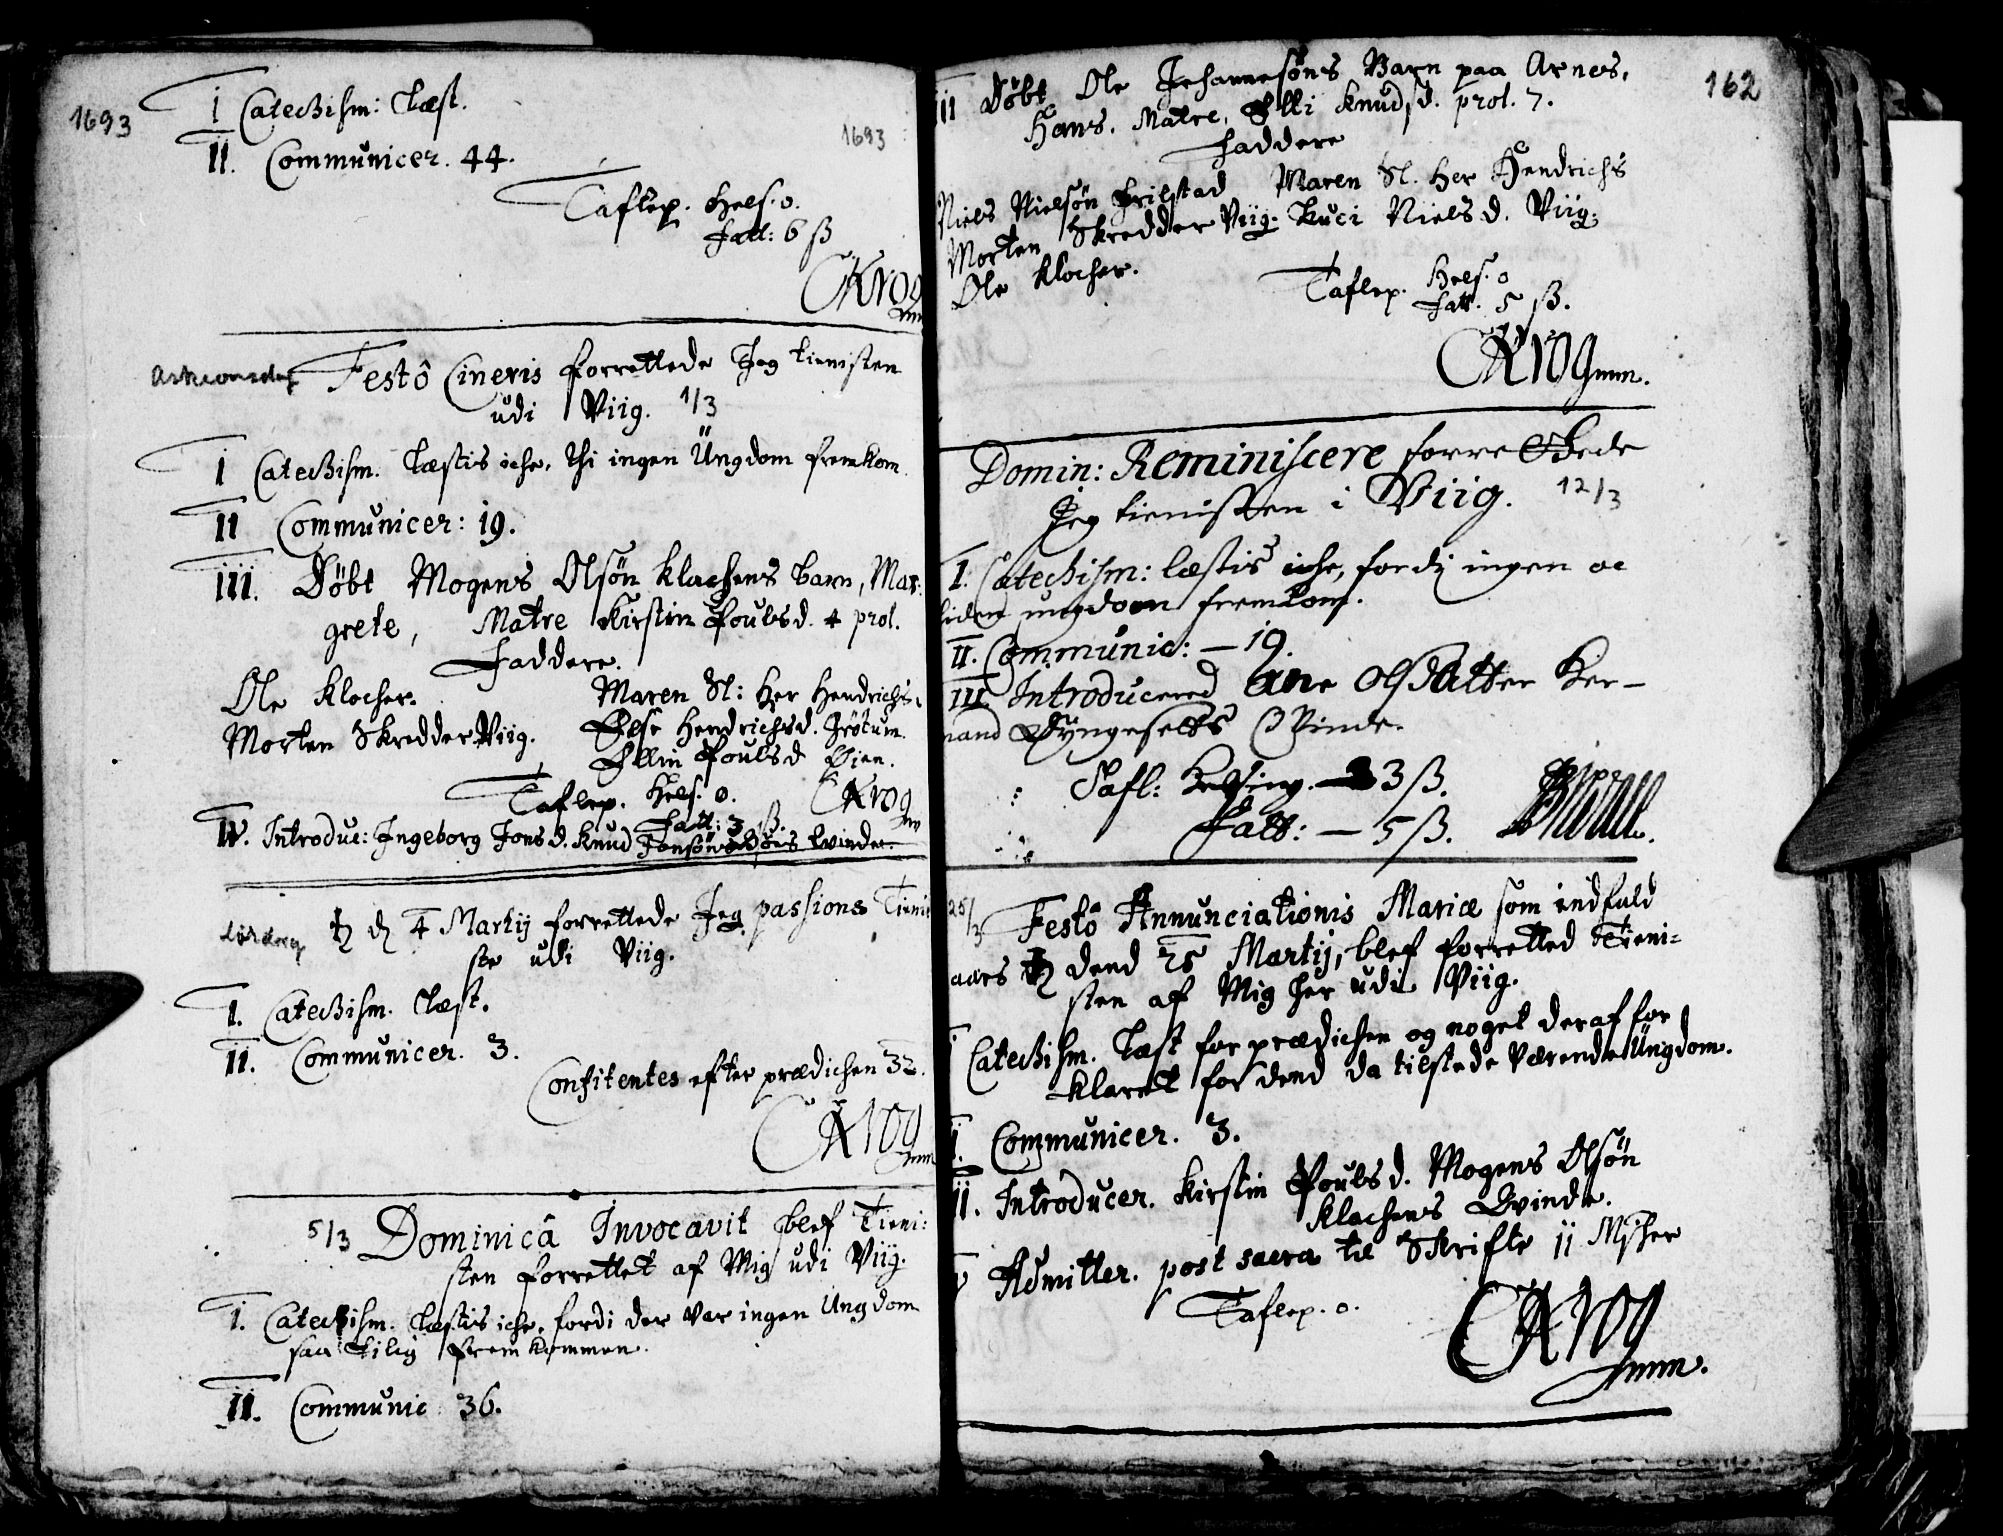 1693
I Catechism: Læst.
1693
II. Communicer. 44.
Taflep. Hels: 0.
Fatt: 6 ß
CKrog
mm
Askeonsdag Festô Cineris forrettede Jeg tienisten
udi Viig. 1/3
I Catechism. Læstis iche, thi ingen Üngdom fremkom.
II Communicer: 19.
III. Döbt Mogens Olsön Klachens barn, Mar:
grete, Matre Kirstin Poulsd. 4 prol.
Faddere.
Ole Klocher. Maren Sl: Her Hendrichs.
Morten Skredder Viig. Else Hendrichsd.
Ellin Poulsd Öien.
Taflep. Hels. 0. CKrog
Fatt: 3 ß.
IV. Introduc: Ingeborg Jonsd. Knud Jonsöns qvinde.
Lördag ♄ d 4 Martij forrettede Jeg passions Tieni
ste udi Viig.
I. Catechism. Læst.
II. Communicer. 3.
Confitentes efter prædichen 32.
CKrog
mm
5/3 Dominicâ Invocavit blef Tieni:
sten forrettet af Mig udi Viig.
I. Catechism. Læstis iche, fordi der var ingen Ungdom
saa tilig frem kommen.
II. Communic 36.
162
III Döbt Ole Johannesöns Barn paa Arnes,
Hans. Matre, Elli Knudsd. prol. 7.
Faddere
Niels Nielsön Frilstad Maren Sl. Her Hendrichs
Morten Skredder Viig. Luci Nielsd. Viig.
Ole Klocher.
Taflep. Hels. 0
Fatt. 5 ß.
CKrog mm.
Domin: Reminiscere forrettede
Jeg tienisten i Viig. 12/3
I. Catechism: læstis iche, fordj ingen oc
liden ungdom fremkom.
II. Communic: – 19.
III. Introducered Ane Olsdatter Ker–
nand Dyngesetts Qvinde.
Tafl: Helsing. – 3 ß.
Fatt: – 5 ß.
25/3 Festô Annunciationis Mariæ som indfald
aars ♄ dend 25 Martij, blef forretted Tieni=
sten af Mig her udi Viig.
I Catechism. Læst for prædichen og noget deraf for
klaret for dend da tilstede værende Üngdom.
II. Communicer. 3.
III. Introducer. Kirstin Poulsd. Mogens Olsön
Klachens Qvinde.
Admitter. post sacra til Skrifte 11 Mscher
Taflep. 0.
CKrog
mm.